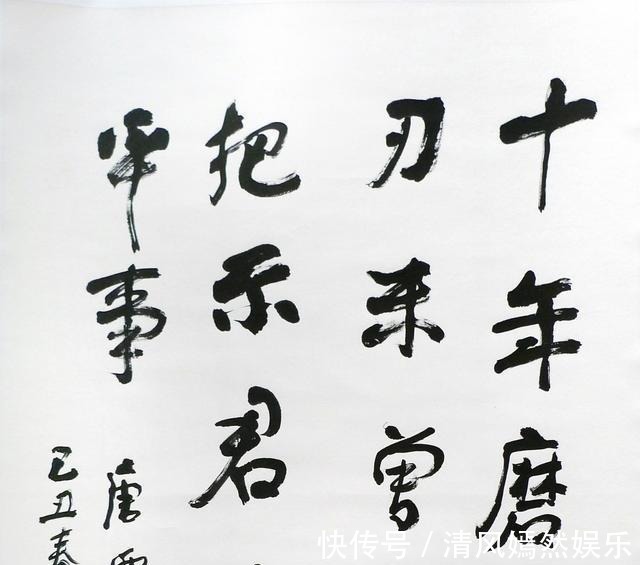 十年磨
刃未曾
把示君
平事
唐
己丑春
快传号 / 清风嫣然娱乐